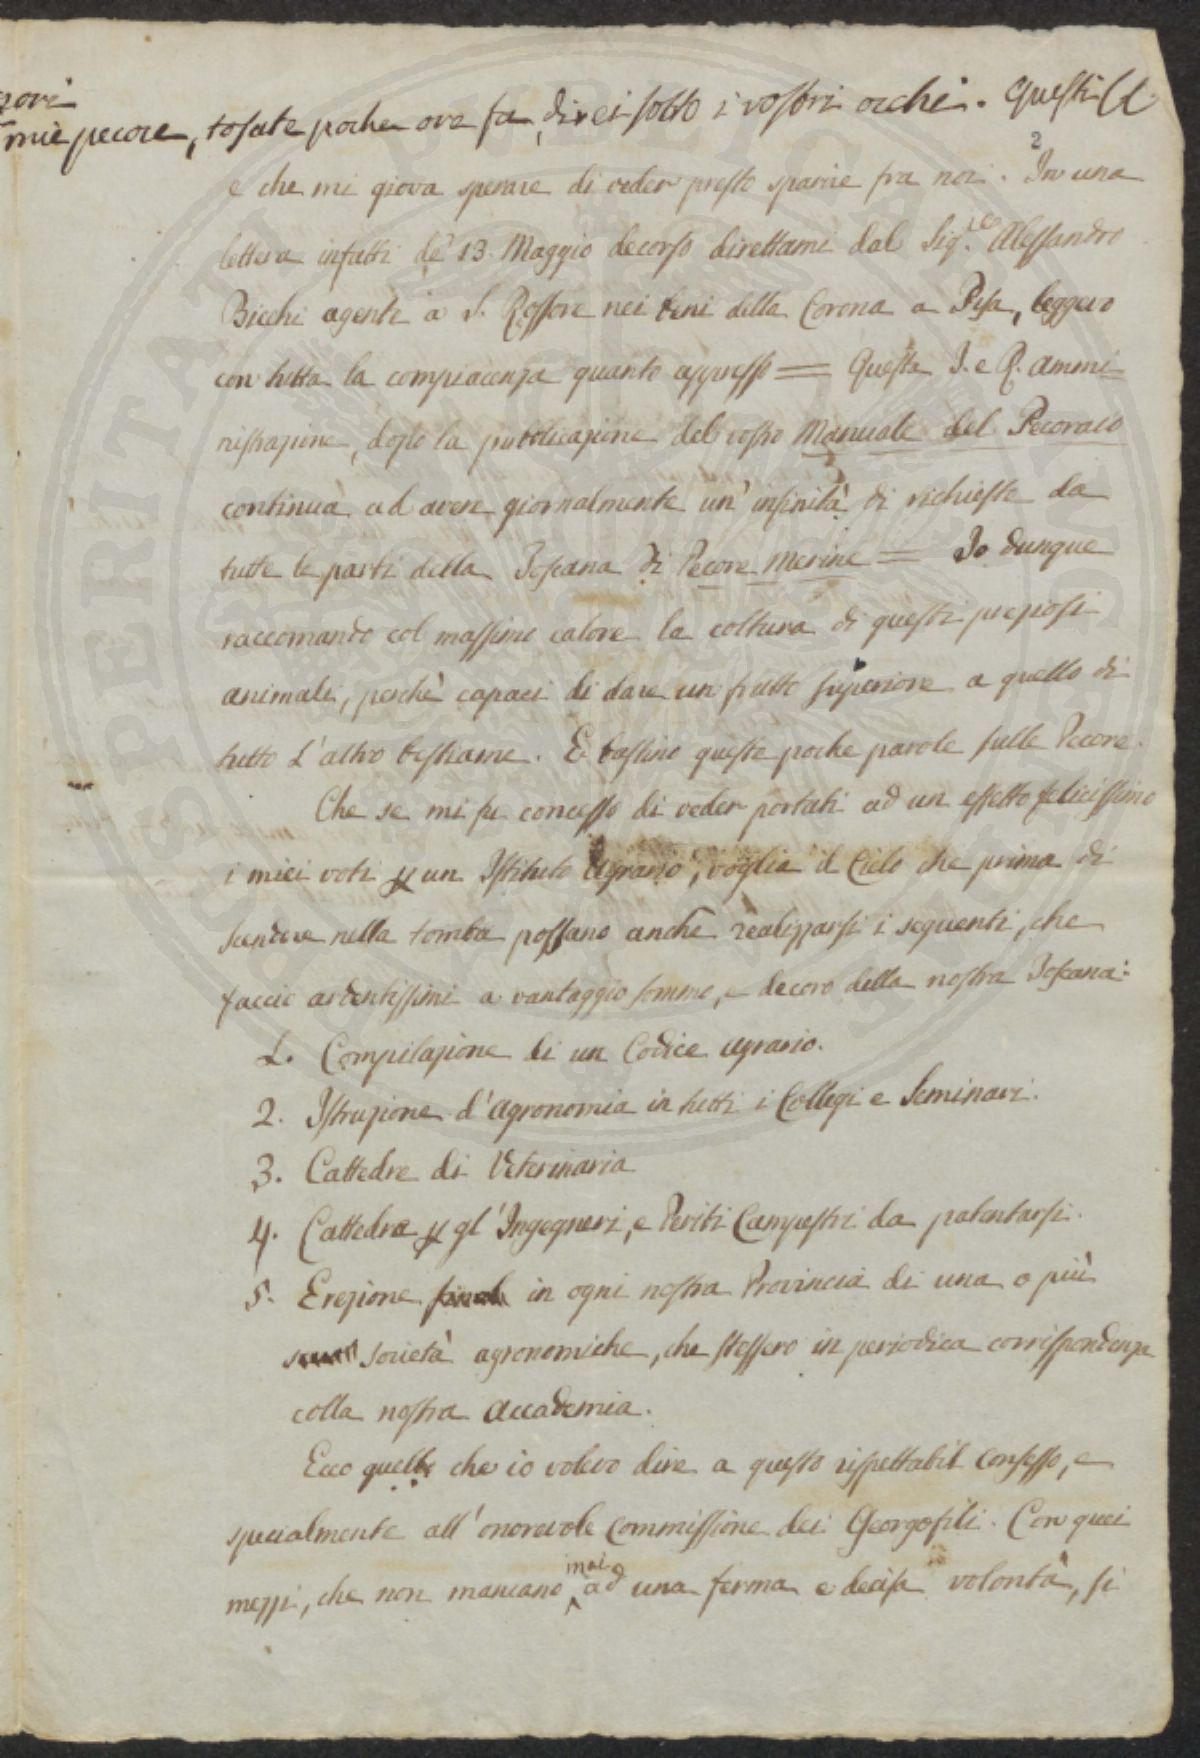 mie pecore, tosate poche ore fa, direi sotto i vostri occhi. Questi
e che mi giova sperare di veder presto sparire fra noi. 2 In una
lettera infatti de 13. Maggio decorso direttami dal Sig.re Alessandro
Bicchi agente a S. Rossore nei beni della Corona a Pisa, leggevo
con tutta la compiacenza quanto appresso = Questa I. e R. Ammi
nistrazione, dopo la pubblicazione del vostro Manuale del Pecoraio
continua ad avere giornalmente un' infinità di richieste da
tutte le parti della Toscana di Pecore Merine = Io dunque
raccomando col massimo calore la coltura di questi preziosi
animali, perchè capaci di dare un frutto superiore a quello di
tutto l'altro bestiame. E bastino queste poche parole sulle Pecore.
Che se mi fu concesso di veder portati ad un effetto felicissimo
i miei voti p un Istituto Agrario, voglia il Cielo che prima di
scendere nella tomba possano anche realizzarsi i seguenti, che
faccio ardentissimi a vantaggio sommo, e decoro della nostra Toscana:
1. Compilazione di un Codice agrario.
2. Istruzione d'Agronomia in tutti i Collegi e Seminari.
3. Cattedre di Veterinaria
4. Cattedra p gl'Ingegneri, e Periti Campestri da patentarsi.
5. Erezione in ogni nostra Provincia di una o più
società agronomiche, che stessero in periodica corrispondenza
colla nostra Accademia.
Ecco quello che io volevo dire a questo rispettabil consesso, e
specialmente all'onorevole Commissione dei Georgofili. Con quei
mezzi, che non mancano mai ad una ferma e decisa volontà, si
PROSPERITATI PUBLICAE